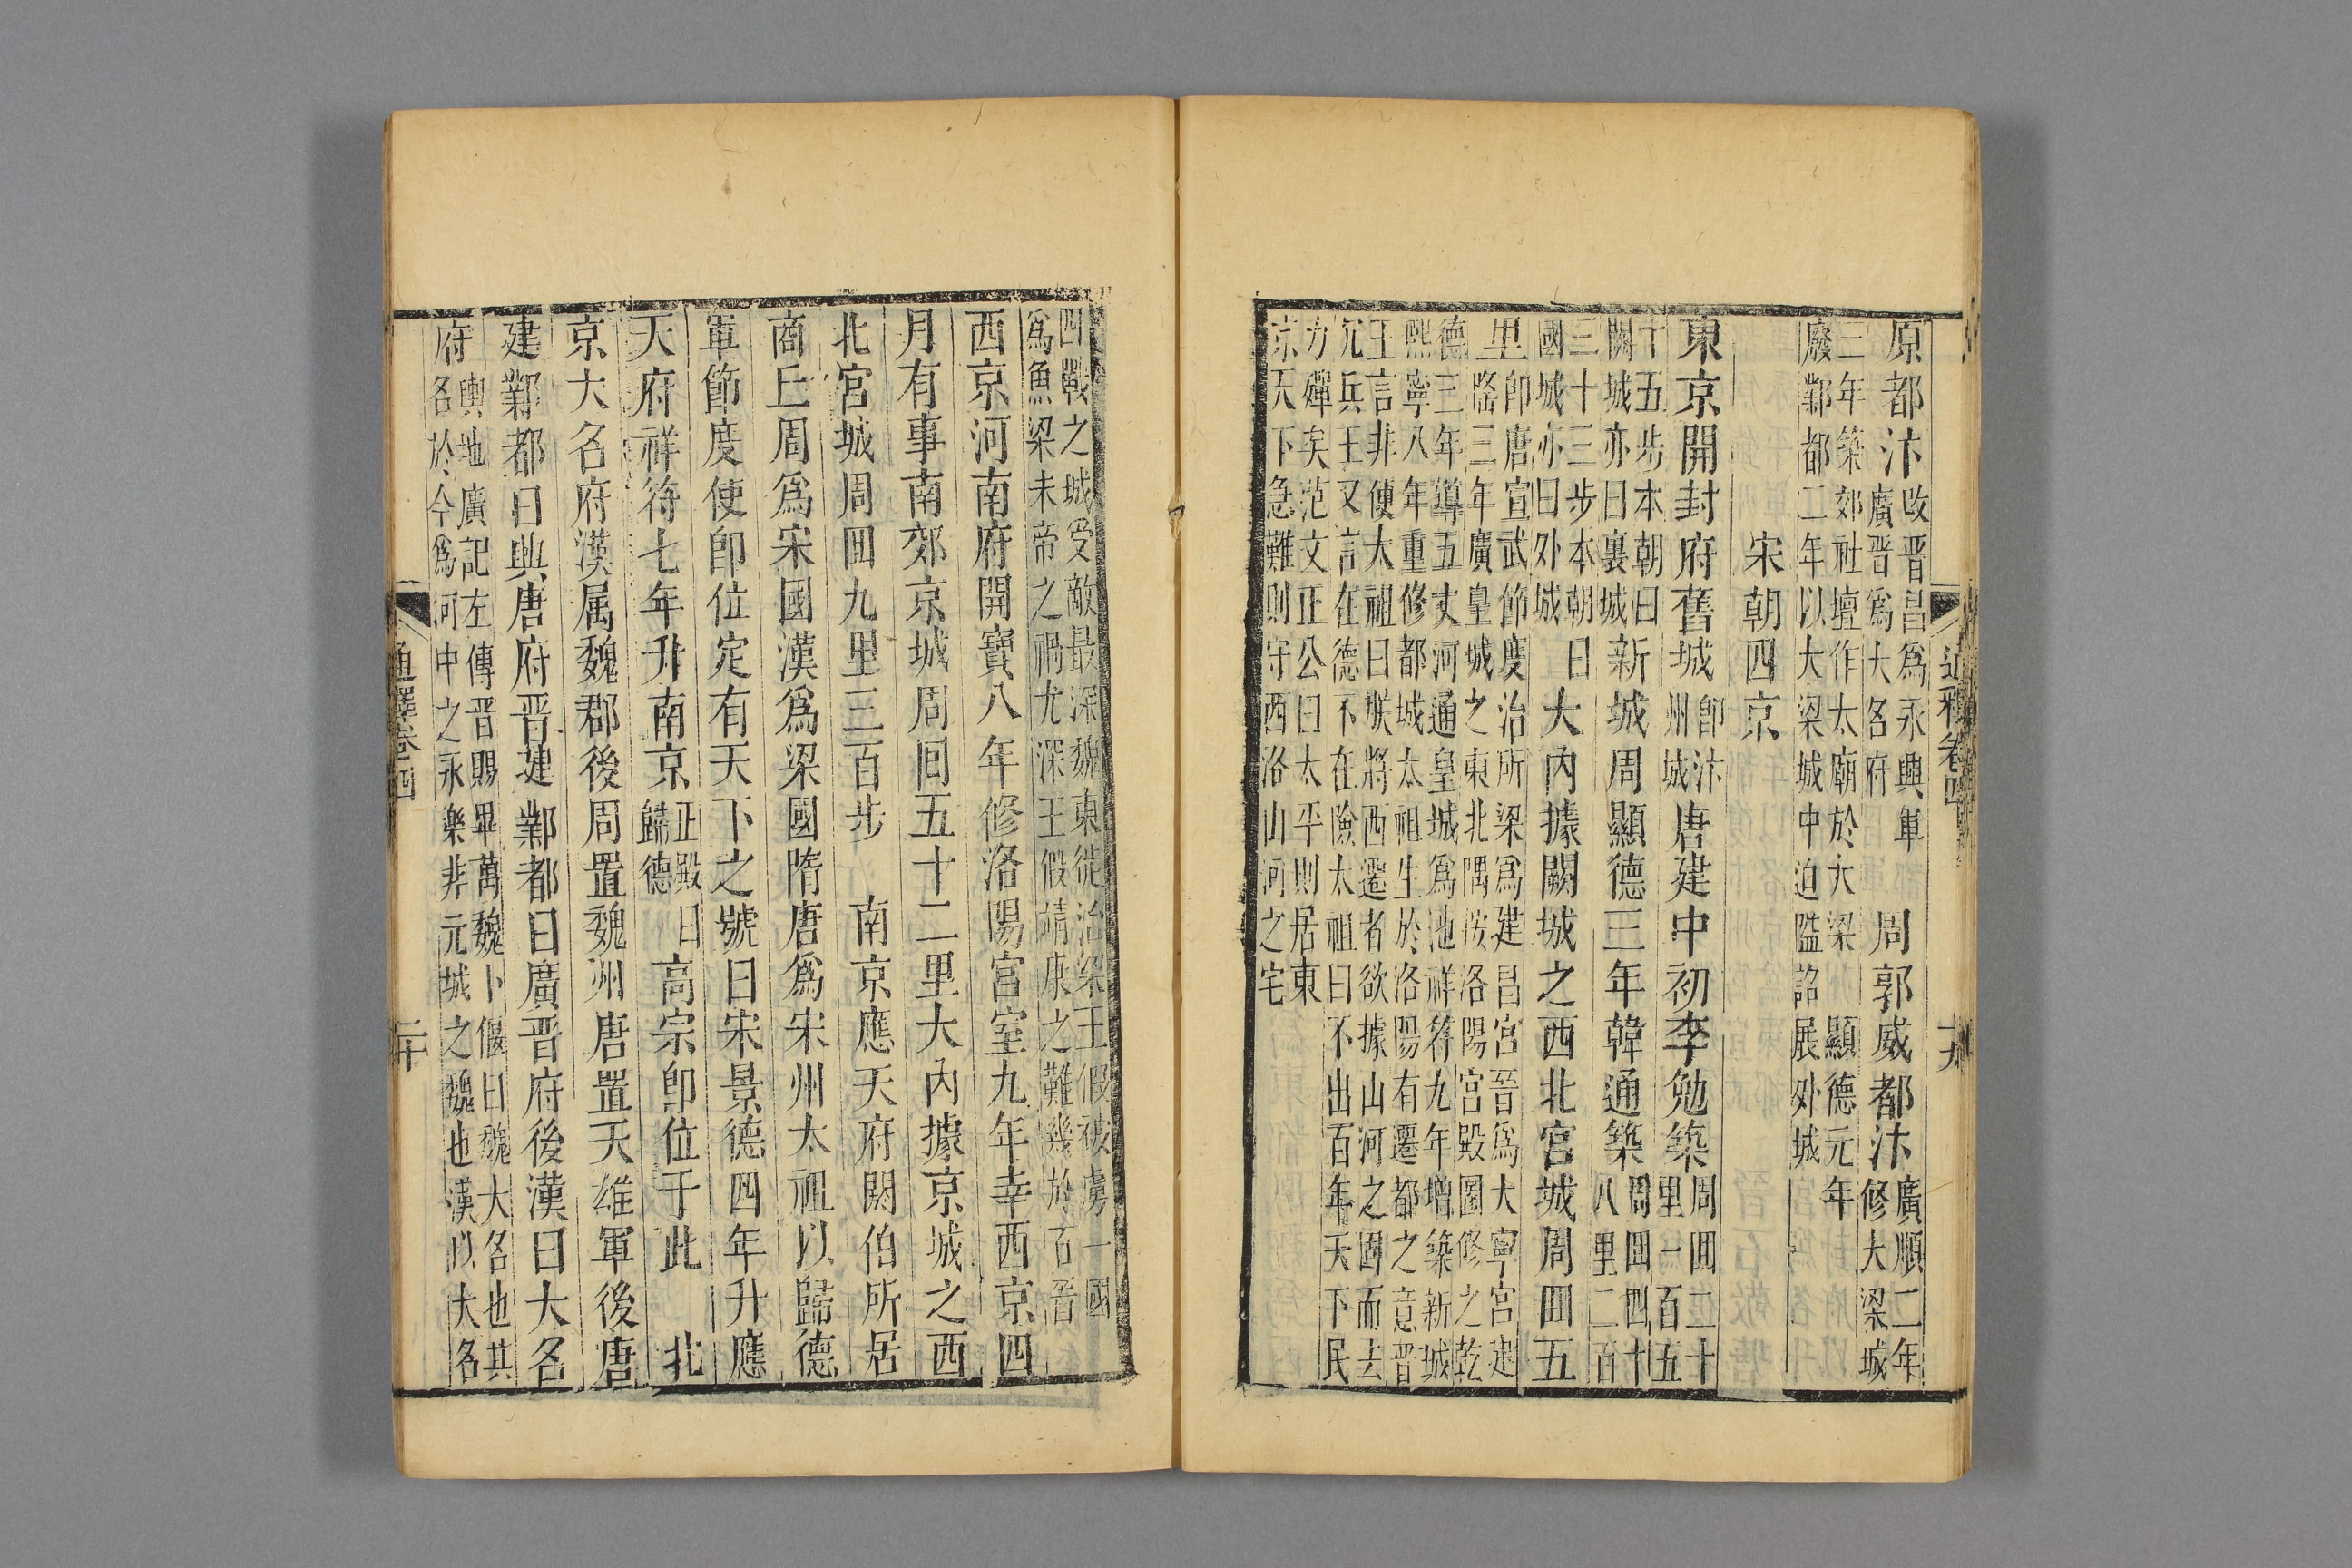 原都汴改晋昌爲永興軍廣晋爲大名府　周郭威都汴廣順二年修大梁城
三年築郊社壇作太廟於大梁　顯德元年廢鄴都二年以大梁城中迫隘詔展外城
宋朝四京
東京開封府舊城即汴州城唐建中初李勉築周回二十里一百五
十五步本朝曰闕城亦曰裏城新城周顯德三年韓通築周回四十八里二百
三十三步本朝曰國城亦曰外城大內據闕城之西北宮城周回五
里即唐宣武節度治所梁爲建昌宮晉爲大寧宮建隆三年廣皇城之東北隅按洛陽宮殿圖修之乾
德三年導五丈河通皇城爲池祥符九年增築新城熙寧八年重修都城太祖生於洛陽有遷都之意晋
王言非便太祖曰朕將西遷者欲據山河之固而去冗兵王又言在德不在險太祖曰不出百年天下民
力殫矣范文正公曰太平則居東京天下急難則守西洛山河之宅
通釋卷四
十九
四戰之城受敵最深魏東徙治梁王假被虜一國爲魚梁末帝之禍尤深王假靖康之難幾於百晋
西京河南府開寶八年修洛陽宮室九年幸西京四
月有事南郊京城周回五十二里大內據京城之西
北宮城周回九里三百步　南京應天府閼伯所居
商丘周爲宋國漢爲梁國隋唐爲宋州太祖以歸德
軍節度使卽位定有天下之號曰宋景德四年升應
天府祥符七年升南京正殿曰歸德高宗卽位于此　北
京大名府漢属魏郡後周置魏州唐置天雄軍後唐
建鄴都曰興唐府晋建鄴都曰廣晋府後漢曰大名
府輿地廣記左傳晋賜畢萬魏卜偃曰魏大名也其名於今爲河中之永樂非元城之魏也漢以大名
通釋卷四
二十